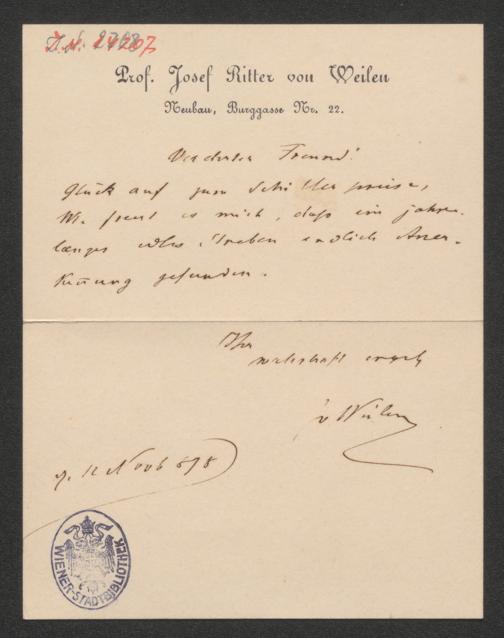 I. N. 14207
Prof. Josef Ritter von Weilen
Neubau, Burggasse Nr. 22.
Verehrter Freund!
Glück auf zum Schillerpreise,
Wie freut es mich, daß ein jahre-
langes edles Streben endlich Aner-
kennung gefunden.
Ihr
wahrhaft ergeb
v Weilen
11 Novb 878
WIENER-STADTBIBLIOTHEK